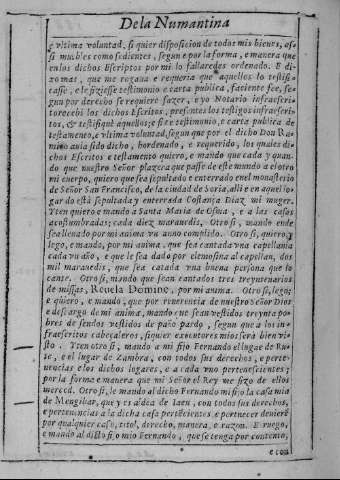 De la Numantina
e vltima voluntad, si quier disposicion de todos mis bienes, as-
si muebles como sedientes, segun e por la forma, e manera que
en los dichos Escriptos por mi lo fallaredes ordenado. E di-
xo mas, que me rogaua e requeria que aquellos lo testifi-
casse, e le fiziesse testimonio e carta publica, faciente fee, se-
gun por derecho se requiere fazer, e yo Notario infraescri-
to recebi los dichos Escritos, presentes los testigos infraescri-
tos, & testifiquè aquellos, e fize testimonio, e carta publica de
testamento, e vltima voluntad, segun que por el dicho Don Ra-
miro auia sido dicho, hordenado, e requerido, los quales di-
chos Escritos e testamento quiero, e mando que cada y quan-
do que nuestro Señor plazerà que passe de este mundo a el otro
mi cuerpo, quiero que sea sepultado e enterrado en el monasterio
de Señor San Francisco, de la ciudad de Soria, alli e en aquel lu-
gar do està sepultada y enterrada Costança Diaz mi muger.
Yten quiero e mando a Santa Maria de Osma, e a las casas
acostumbradas; cada diez marauedis, Otro si, mando ende
sea leuado por mi anima vn anno complido. Otro si, quiero, y
lego, e mando, por mi anima, que sea cantada vna capellania
cada vn año, e que le sea dado por elemosina al capellan, dos
mil marauedis, que sea catada vna buena persona que lo
cante. Otro si, mando que sean cantados tres treyntenarios
de missas, Reuela Domine, por mi anima. Otro si, lego;
e quiero, e mando, que por reuerencia de nuestro Señor Dios
e descargo de mi anima, mando que sean vestidos treynta po-
bres de sendos vestidos de paño pardo, segun que a los in-
fraescritos cabeçaleros, siquier executores mios serà bien vi-
sto. Yten otro si, mando a mi fijo Fernando el lugar de Ru-
te, e el lugar de Zambra, con todos sus derechos, e perte-
nencias e los dichos logares, e a cada vno pertenescientes;
por la forma e manera que mi Señor el Rey me fizo de ellos
merced. Otro si, le mando al dicho Fernando mi fijo la casa mia
de Mengibar, que y es aldea de Iaen, con todos sus derechos,
e pertenencias a la dicha casa pertecientes e pertenecer deuiere
por qualquier caso, titol, derecho, manera, e razon. E ruego,
e mando al dicho fijo mio Fernando, que se tenga por contento,
e con